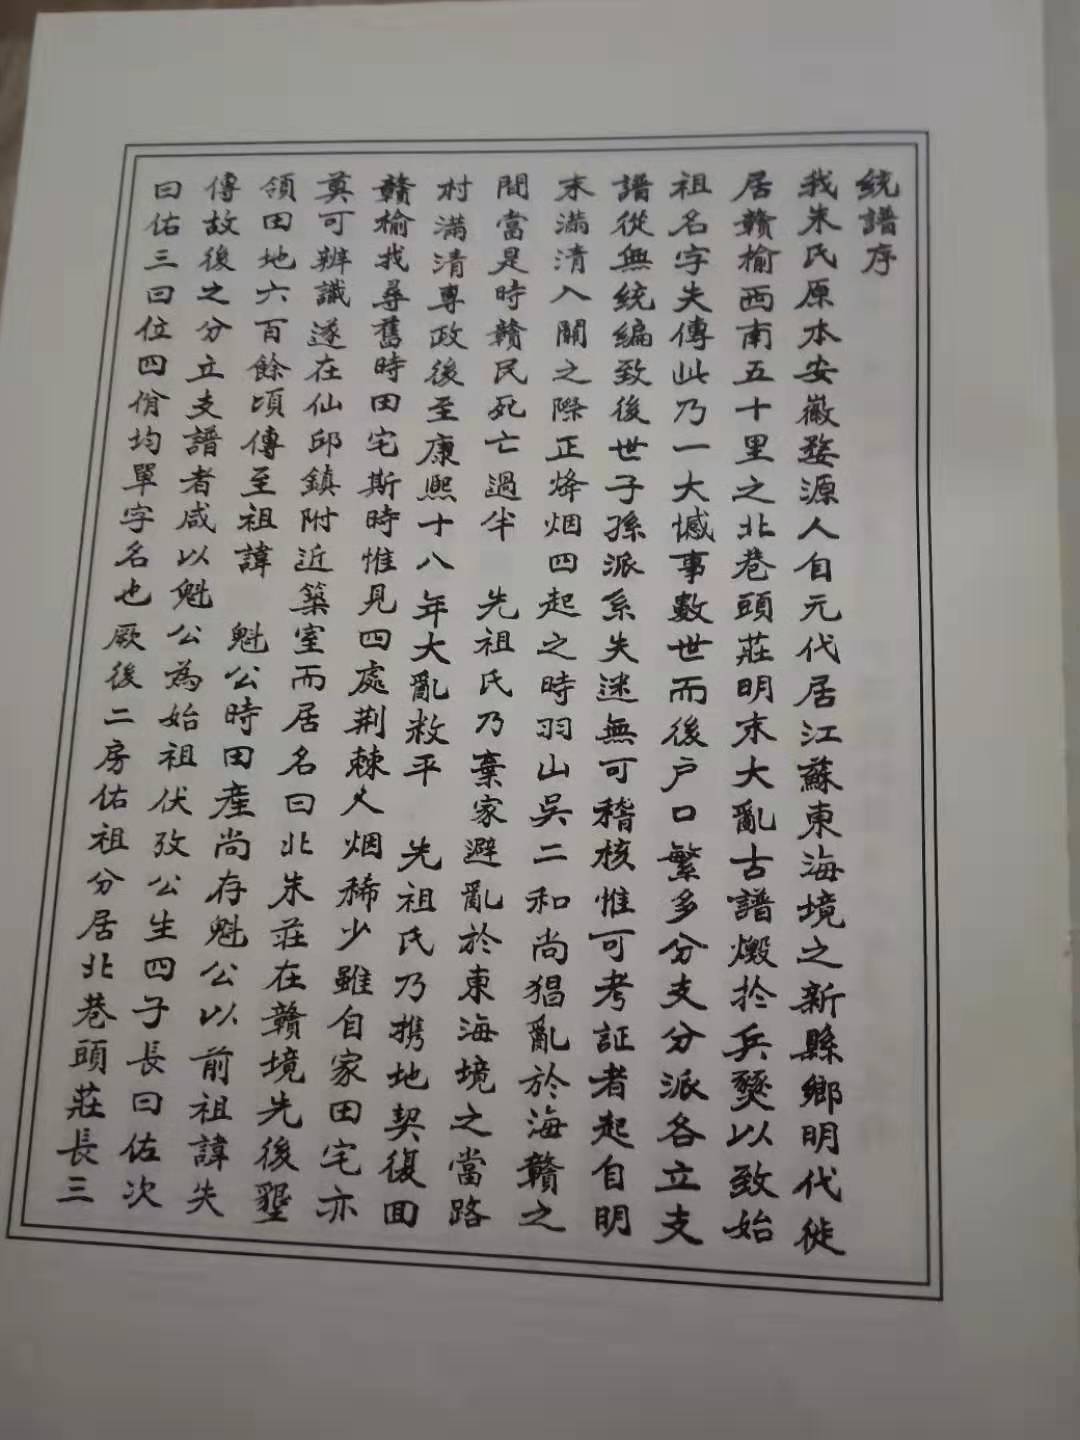 統譜序
我朱氏原本安徽婺源人自元代居江蘇東海境之新縣鄉明代徙
居贛榆西南五十里之北巷頭莊明末大亂古譜燬於兵燹以致始
祖名字失傳此乃一大憾事數世而後户口繁多分支分派各立支
譜從無統編致後世子孫派系失迷無可稽核惟可考証者起自明
末滿清入關之際正烽烟四起之時羽山吳二和尚猖亂於海贛之
間當是時贛民死亡過半　先祖氏乃棄家避亂於東海境之當路
村滿清專政後至康熙十八年大亂敉平　先祖氏乃携地契復回
贛榆找尋舊時田宅斯時惟見四處荆棘人烟稀少雖自家田宅亦
莫可辨識遂在仙邱鎮附近築室而居名曰北朱莊在贛境先後墾
領田地六百餘頃傳至祖諱　魁公時田産尚存魁公以前祖諱失
傳故後之分立支譜者咸以魁公為始祖伏攷公生四子長曰佐次
曰佑三曰位四俏均單字名也厥後二房佑祖分居北巷頭莊長三